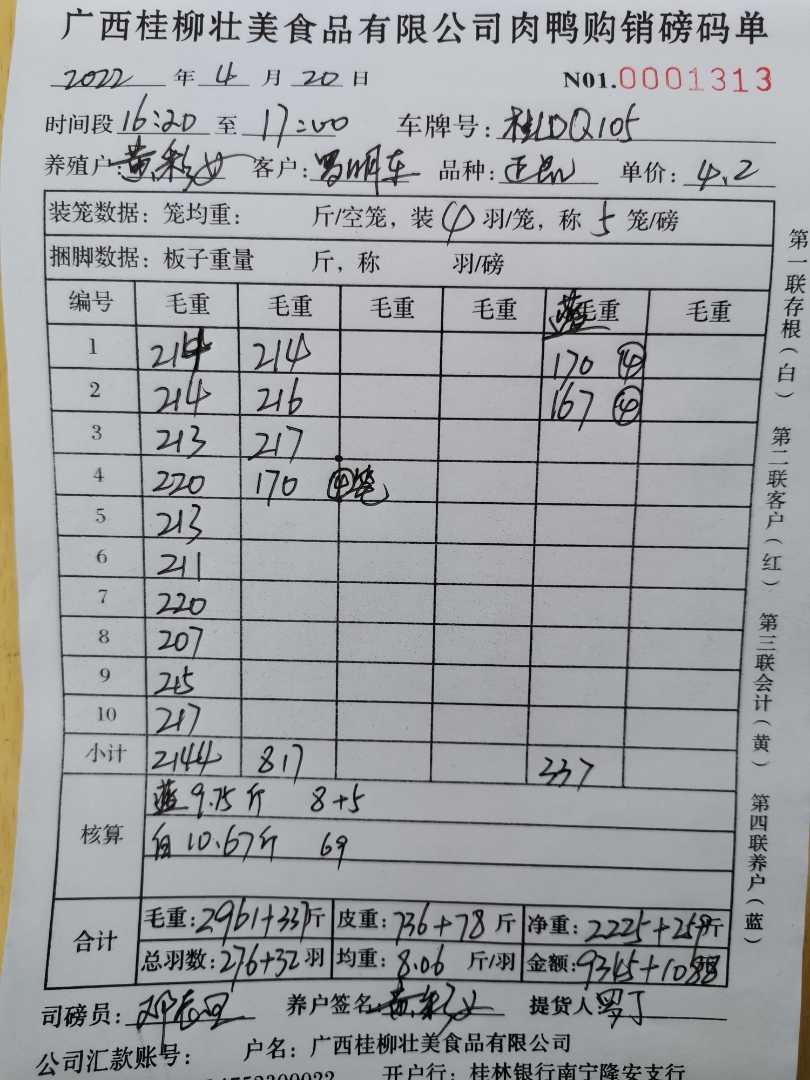 广西桂柳壮美食品有限公司肉鸭购销磅码单
2022 年 4 月 20 日 N01.0001313
时间段 16:20 至 17:00 车牌号: 桂LDQ105
养殖户: 黄彩 客户: 罗明车 品种: 单价: 4.2
装笼数据: 笼均重: 斤/空笼, 装 4 羽/笼, 称 5 笼/磅
捆脚数据: 板子重量 斤, 称 羽/磅
编号 毛重 毛重 毛重 毛重 蓝 毛重 毛重
1 214 214 170 ④
2 214 216 167 ④
3 213 217
4 220 170 ④笼
5 213
6 211
7 220
8 207
9 215
10 217
小计 2144 817 337
核算 蓝 9.75斤 8+5
白 10.67斤 69
合计 毛重: 2961+337斤 皮重: 736+78 斤 净重: 2225+259斤
总羽数: 276+32 羽 均重: 8.06 斤/羽 金额: 9345+1088
司磅员: 邓 养户签名 黄彩 提货人 罗丁
公司汇款账号: 户名: 广西桂柳壮美食品有限公司
开户行: 桂林银行南宁隆安支行
第一联存根(白) 第二联客户(红) 第三联会计(黄) 第四联养户(蓝)